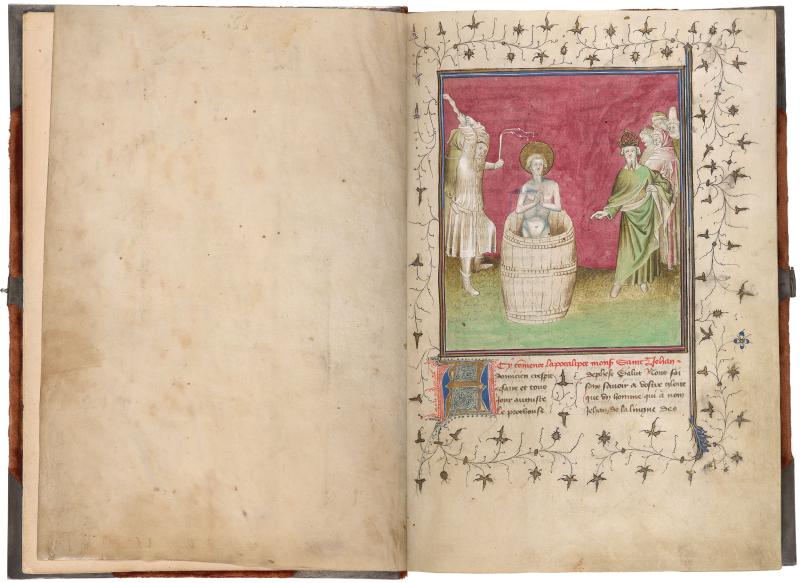 Cy comence lapocalipce mons Saint Jehan
Domicien cespire
cesaire et tous
jour auguste
le proconse
dephese Salut Nous fai
sons savoir a vostre gloire
que un homme qui a nom
Jehan de la lingne des